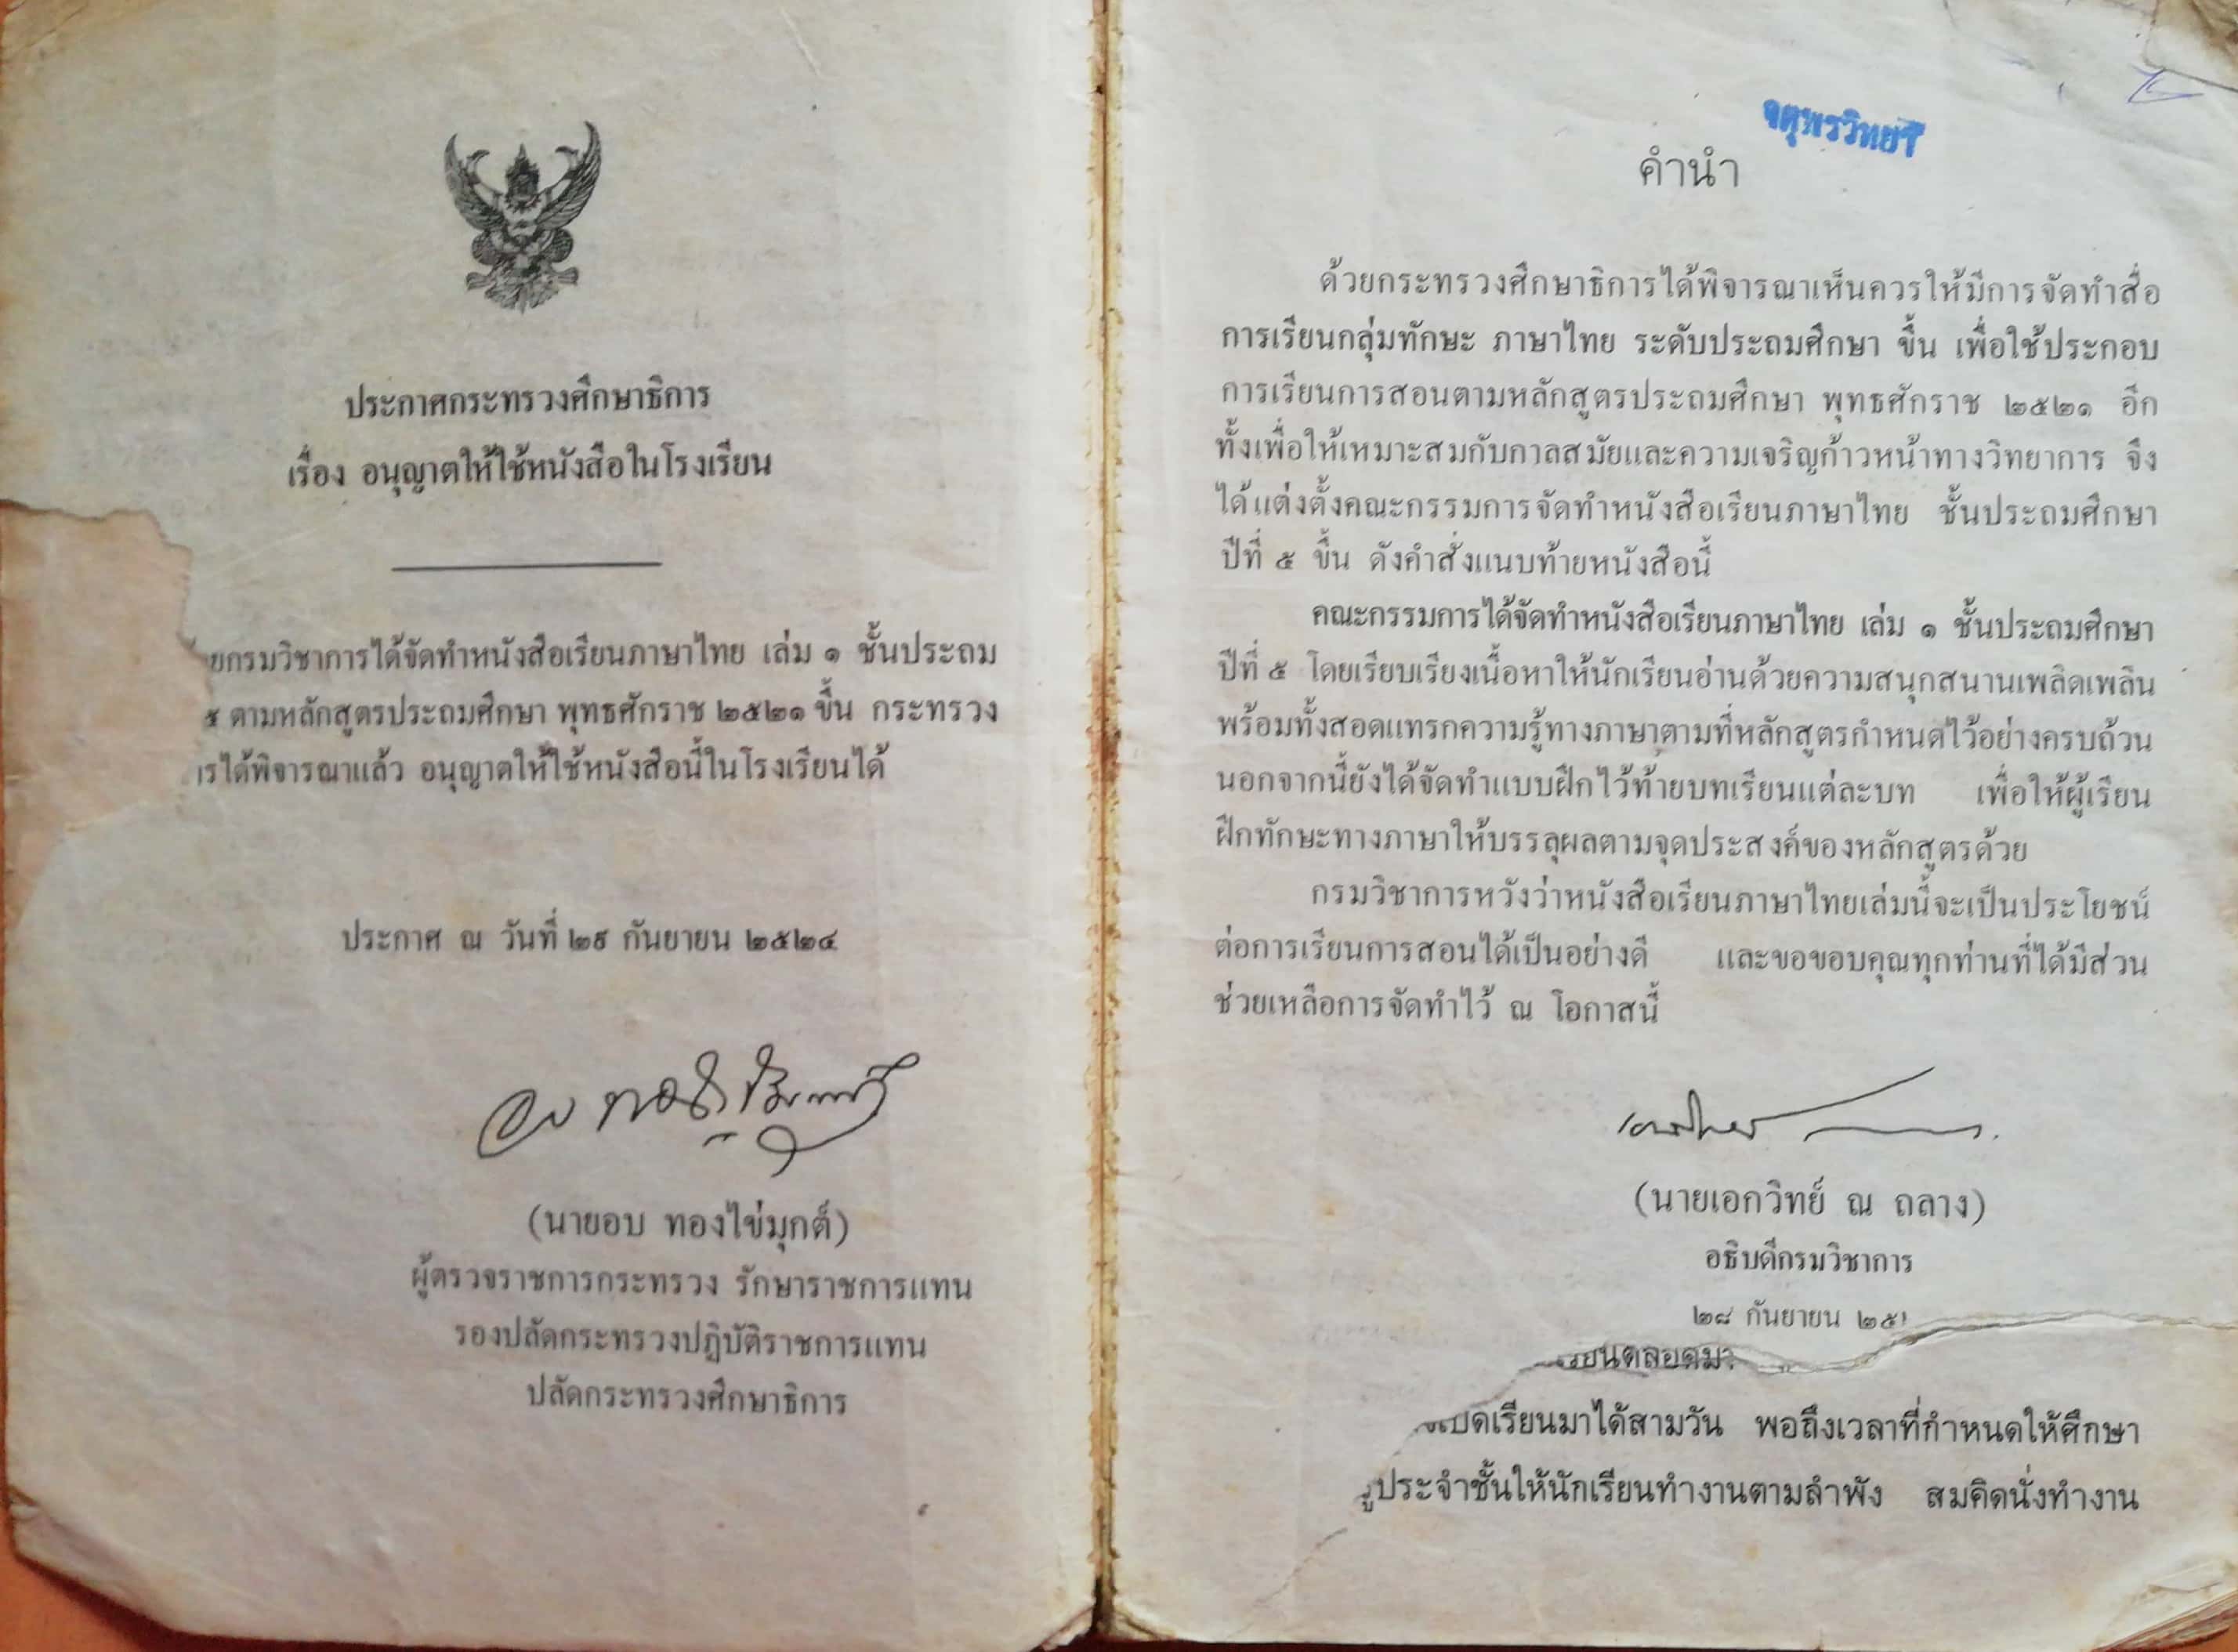 ประกาศกระทรวงศึกษาธิการ
เรื่อง อนุญาตให้ใช้หนังสือในโรงเรียน
ยกรมวิชาการได้จัดทำหนังสือเรียนภาษาไทย เล่ม ๑ ชั้นประถม
๕ ตามหลักสูตรประถมศึกษา พุทธศักราช ๒๕๒๑ ขึ้น กระทรวง
รได้พิจารณาแล้ว อนุญาตให้ใช้หนังสือนี้ในโรงเรียนได้
ประกาศ ณ วันที่ ๒๙ กันยายน ๒๕๒๔
(นายอบ ทองไข่มุกต์)
ผู้ตรวจราชการกระทรวง รักษาราชการแทน
รองปลัดกระทรวงปฏิบัติราชการแทน
ปลัดกระทรวงศึกษาธิการ
คำนำ
ด้วยกระทรวงศึกษาธิการได้พิจารณาเห็นควรให้มีการจัดทำสื่อ
การเรียนกลุ่มทักษะ ภาษาไทย ระดับประถมศึกษา ขึ้น เพื่อใช้ประกอบ
การเรียนการสอนตามหลักสูตรประถมศึกษา พุทธศักราช ๒๕๒๑ อีก
ทั้งเพื่อให้เหมาะสมกับกาลสมัยและความเจริญก้าวหน้าทางวิทยาการ จึง
ได้แต่งตั้งคณะกรรมการจัดทำหนังสือเรียนภาษาไทย ชั้นประถมศึกษา
ปีที่ ๕ ขึ้น ดังคำสั่งแนบท้ายหนังสือนี้
คณะกรรมการได้จัดทำหนังสือเรียนภาษาไทย เล่ม ๑ ชั้นประถมศึกษา
ปีที่ ๕ โดยเรียบเรียงเนื้อหาให้นักเรียนอ่านด้วยความสนุกสนานเพลิดเพลิน
พร้อมทั้งสอดแทรกความรู้ทางภาษาตามที่หลักสูตรกำหนดไว้อย่างครบถ้วน
นอกจากนี้ยังได้จัดทำแบบฝึกไว้ท้ายบทเรียนแต่ละบท เพื่อให้ผู้เรียน
ฝึกทักษะทางภาษาให้บรรลุผลตามจุดประสงค์ของหลักสูตรด้วย
กรมวิชาการหวังว่าหนังสือเรียนภาษาไทยเล่มนี้จะเป็นประโยชน์
ต่อการเรียนการสอนได้เป็นอย่างดี และขอขอบคุณทุกท่านที่ได้มีส่วน
ช่วยเหลือการจัดทำไว้ ณ โอกาสนี้
(นายเอกวิทย์ ณ ถลาง)
อธิบดีกรมวิชาการ
๒๘ กันยายน ๒๕
เปิดเรียนมาได้สามวัน พอถึงเวลาที่กำหนดให้ศึกษา
ประจำชั้นให้นักเรียนทำงานตามลำพัง สมคิดนั่งทำงาน